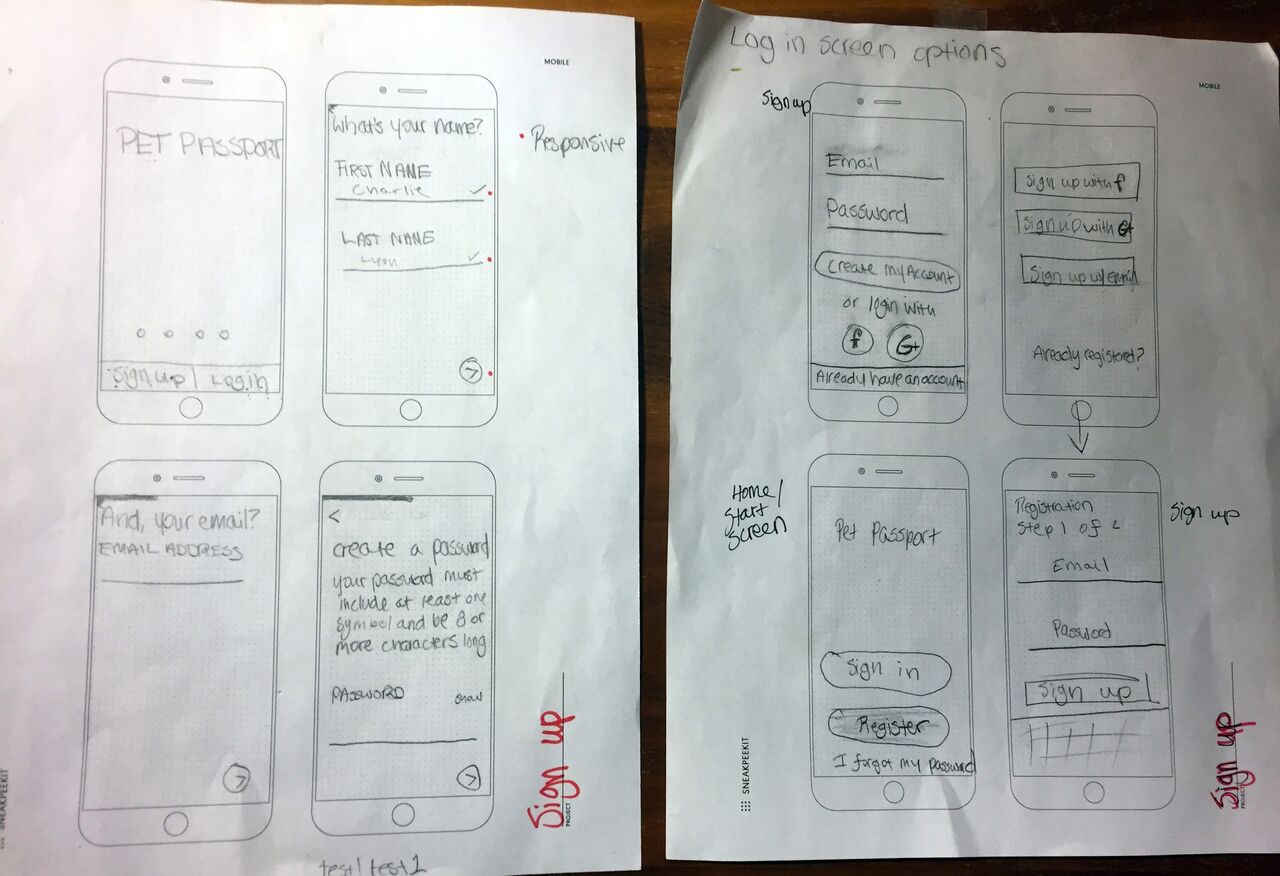 MOBILE
PET PASSPORT
Sign up | Log in
What's your name?
FIRST NAME
Charlie
LAST NAME
Lyon
Responsive
And, your email?
EMAIL ADDRESS
<
create a password
your password must
include at least one
symbol and be 8 or
more characters long
PASSWORD show
SNEAKPEEKIT
Sign up
PROJECT
test1 test1
Log in screen options
MOBILE
Sign up
Email
Password
Create my Account
or login with
f G+
Already have an account
Sign up with f
Sign up with G+
Sign up w/ email
Already registered?
Home/
Start
Screen
Pet Passport
Sign in
Register
I forgot my password
Registration
Step 1 of 2
Email
Password
Sign up
Sign up
SNEAKPEEKIT
Sign up
PROJECT